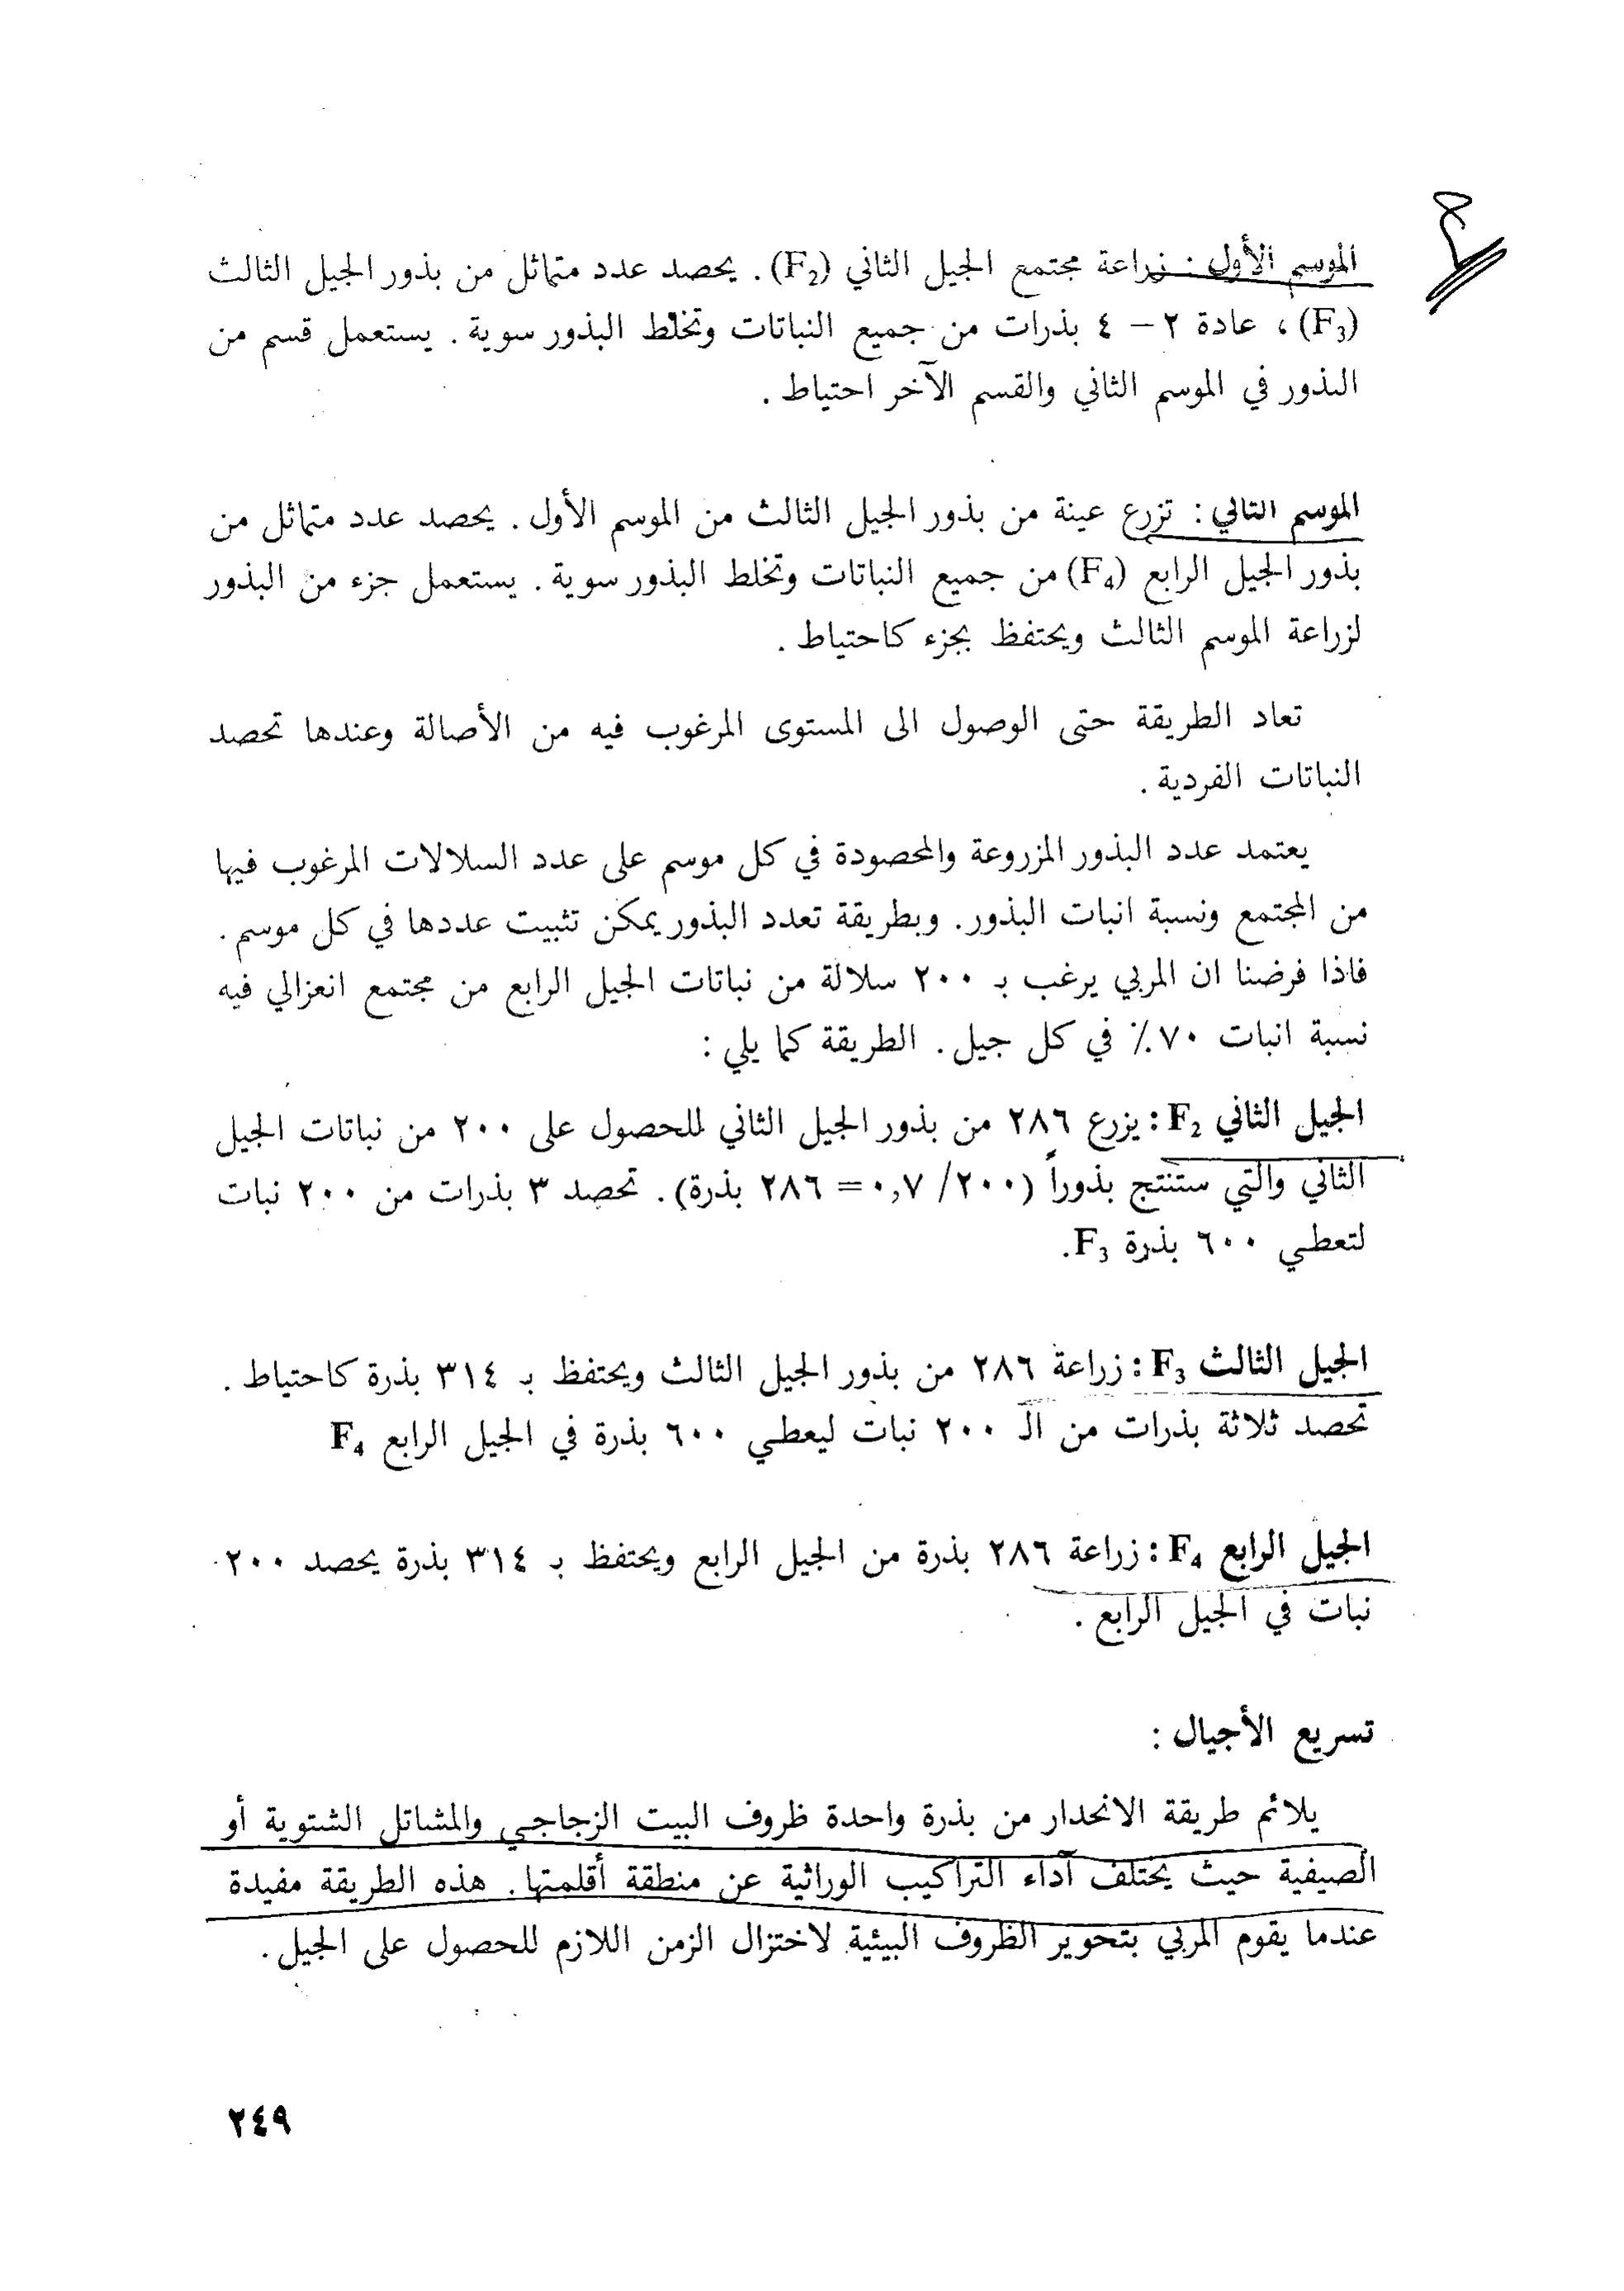 الموسم الأول : زراعة مجتمع الجيل الثاني (F₂). يحصد عدد متماثل من بذور الجيل الثالث
(F₃)، عادة ٢ – ٤ بذرات من جميع النباتات وتخلط البذور سوية. يستعمل قسم من
البذور في الموسم الثاني والقسم الآخر احتياط.
الموسم التالي: تزرع عينة من بذور الجيل الثالث من الموسم الأول. يحصد عدد متماثل من
بذور الجيل الرابع (F₄) من جميع النباتات وتخلط البذور سوية. يستعمل جزء من البذور
لزراعة الموسم الثالث ويحتفظ بجزء كاحتياط.
تعاد الطريقة حتى الوصول الى المستوى المرغوب فيه من الأصالة وعندها تحصد
النباتات الفردية.
يعتمد عدد البذور المزروعة والمحصودة في كل موسم على عدد السلالات المرغوب فيها
من المجتمع ونسبة انبات البذور. وبطريقة تعدد البذور يمكن تثبيت عددها في كل موسم.
فاذا فرضنا ان المربي يرغب بـ ٢٠٠ سلالة من نباتات الجيل الرابع من مجتمع انعزالي فيه
نسبة انبات ٧٠٪ في كل جيل. الطريقة كما يلي:
الجيل الثاني F₂: يزرع ٢٨٦ من بذور الجيل الثاني للحصول على ٢٠٠ من نباتات الجيل
الثاني والتي ستنتج بذوراً (٢٠٠/ ٠,٧ = ٢٨٦ بذرة). تحصد ٣ بذرات من ٢٠٠ نبات
لتعطي ٦٠٠ بذرة F₃.
الجيل الثالث F₃: زراعة ٢٨٦ من بذور الجيل الثالث ويحتفظ بـ ٣١٤ بذرة كاحتياط.
تحصد ثلاثة بذرات من الـ ٢٠٠ نبات ليعطي ٦٠٠ بذرة في الجيل الرابع F₄
الجيل الرابع F₄: زراعة ٢٨٦ بذرة من الجيل الرابع ويحتفظ بـ ٣١٤ بذرة يحصد ٢٠٠
نبات في الجيل الرابع.
تسريع الأجيال :
يلائم طريقة الانحدار من بذرة واحدة ظروف البيت الزجاجي والمشاتل الشتوية أو
الصيفية حيث يختلف آداء التراكيب الوراثية عن منطقة أقلمتها. هذه الطريقة مفيدة
عندما يقوم المربي بتحوير الظروف البيئية لاختزال الزمن اللازم للحصول على الجيل.
٢٤٩